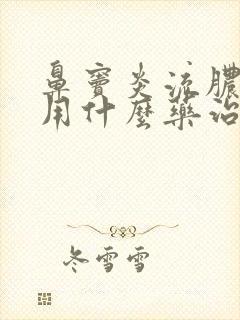 鼻窦炎流膿
用什麼藥治
冬雪雪